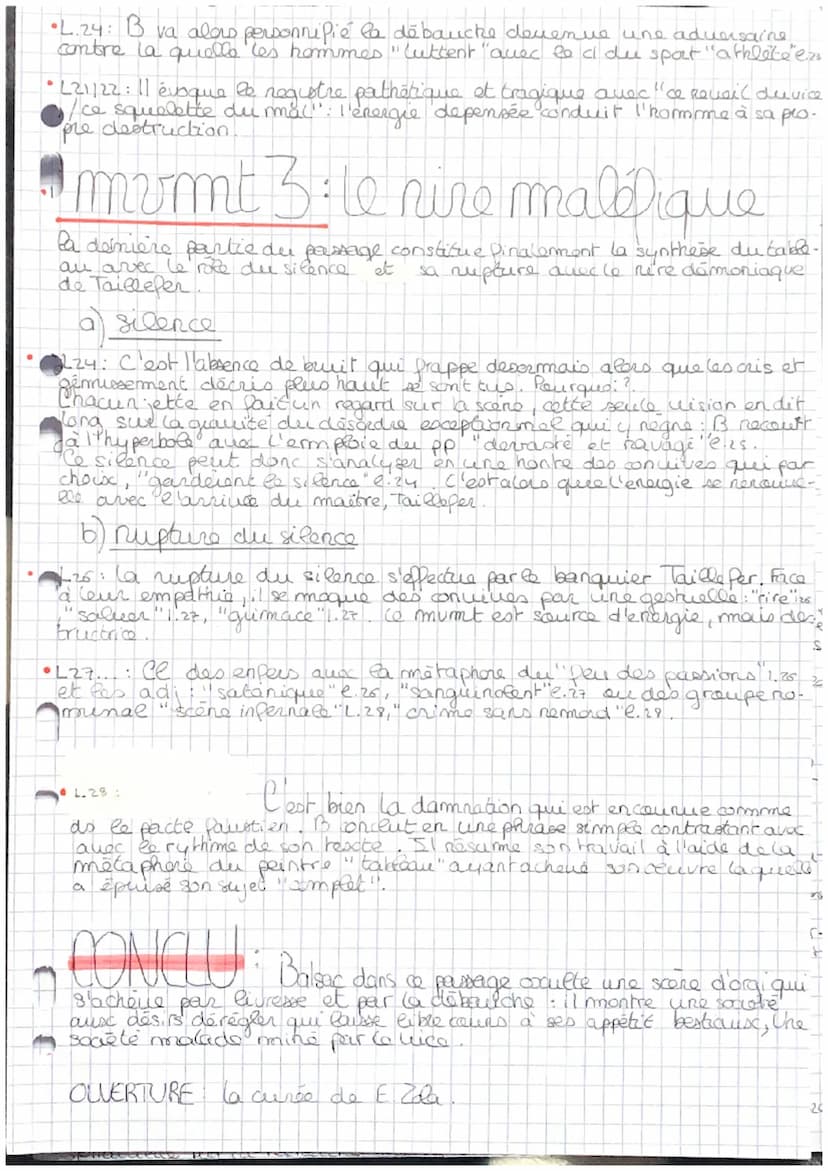 • L.24: B va alors personnifié la débauche devenue une adversaire
contre la quelle les hommes "luttent" avec le cl du sport "athlète" l.20
• L21/22: Il évoque le registre pathétique et tragique avec "ce réveil du vice
/ce squelette du mal": l'énergie depensée conduit l'homme à sa pro-
pre destruction.
mvmt 3: le rire maléfique
la dernière partie du passage constitue finalement la synthèse du table-
au avec le rôle du silence et sa rupture avec le rire démoniaque
de Taillefer.
a) silence
• L24: C'est l'absence de bruit qui frappe desormais alors que les cris et
gémissement décris plus haut se sont tus. Pourquoi?
Chacun jette en fait un regard sur la scène, cette seule vision en dit
long sur la gravité du désordre exceptionnel qui y règne: B recourt
à l'hyperbole avec l'emploie du pp "devasté et ravagé" l.25.
Ce silence peut donc s'analyser en une honte des convives qui par
choix, "gardèrent le silence" l.24. C'est alors que l'énergie se renouve-
lle avec l'arrivée du maître, Taillefer.
b) rupture du silence
• L26: la rupture du silence s'effectue par le banquier Taillefer. Face
à leur empathie, il se moque des convives par une gestuelle: "rire" l26
"saluer" l.27, "grimace" l.27. Ce mvmt est source d'énergie, mais des-
tructrice.
• L27...: CL des enfers avec la métaphore du "feu des passions" l.25
et les adj: "satanique" l.26, "sanguinolent" l.27 ou des groupe no-
minal "scène infernale" L.28, "crime sans remord" l.29.
• L.28: C'est bien la damnation qui est encourue comme
ds le pacte faustien. B conclut en une phrase simple contrastant avec
avec le rythme de son texte. Il résume son travail à l'aide de la
métaphore du peintre "tableau" ayant achevé son œuvre laquelle
a épuisé son sujet "complet".
CONCLU: Balsac dans ce passage une scène d'orgi qui
s'achève par l'ivresse et par la débauche: il montre une société
aux désirs dérégler qui laisse libre cours à ses appétit bestiaux, Une
société malade miné par le vice.
OUVERTURE: la curée de E. Zola.